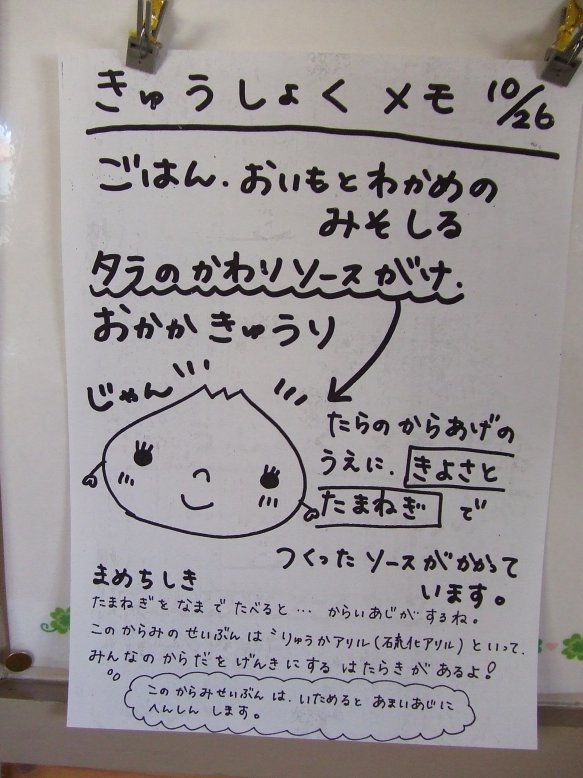 きゅうしょくメモ 10/26
ごはん.おいもとわかめの
みそしる
タラのかわりソースがけ.
おかかきゅうり
じゃん
たらのからあげの
うえに.きよさと
たまねぎ で
つくったソースがかかって
います。
まめちしき
たまねぎをなまでたべると…からいあじがするね。
このからみのせいぶんは"りゅうかアリル(硫化アリル)といって.
みんなのからだをげんきにするはたらきがあるよ!
このからみせいぶんは、いためるとあまいあじに
へんしんします。